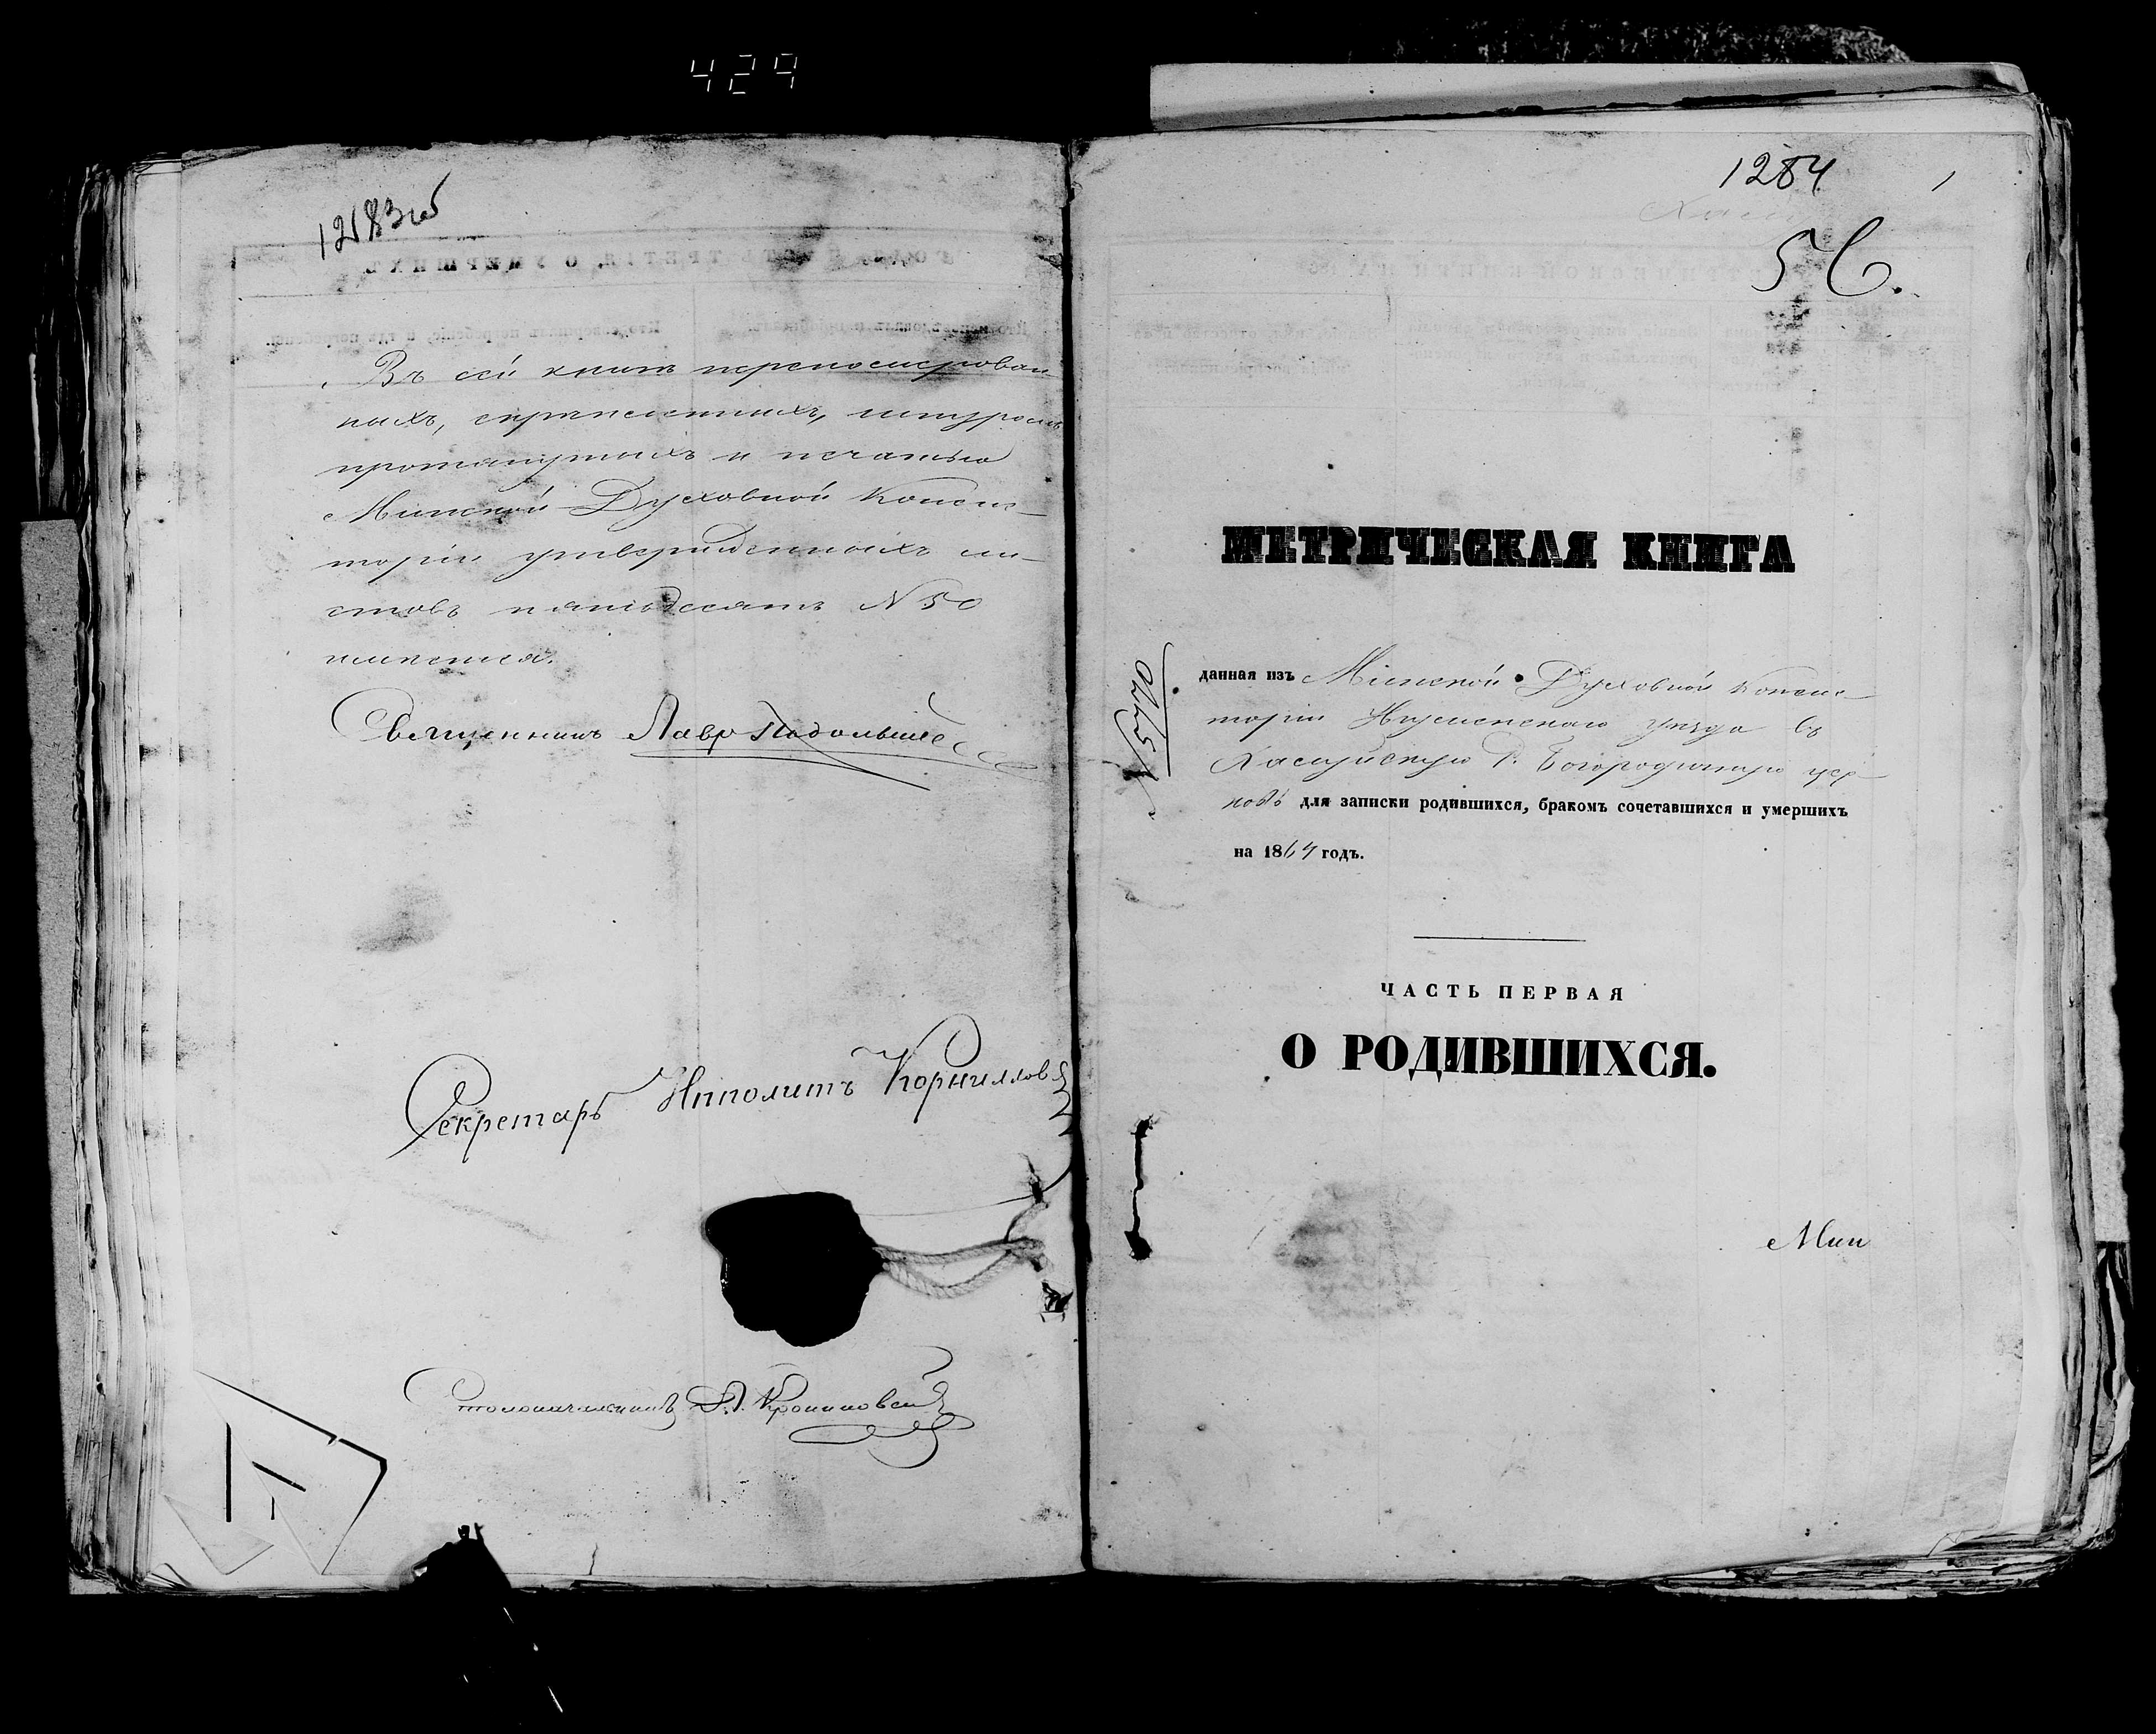 429
1283об
Въ сей книгѣ перенумерован-
ныхъ, скрѣпленныхъ, шнуромъ
протянутыхъ и печатью
Минской Духовной Консис-
торіи утвержденныхъ ли-
стовъ пятьдесятъ N 50
имѣется.
Священникъ Лавр
Секретарь Иполитъ Корниллов
Столоначальникъ
1284
56.
МЕТРИЧЕСКАЯ КНИГА
данная изъ Минской Духовной Консис-
торіи Игуменскаго уѣзда въ
Р. Богородичную цер-
ковь для записки родившихся, бракомъ сочетавшихся и умершихъ
на 1864 годъ.
ЧАСТЬ ПЕРВАЯ
О РОДИВШИХСЯ.
Мин